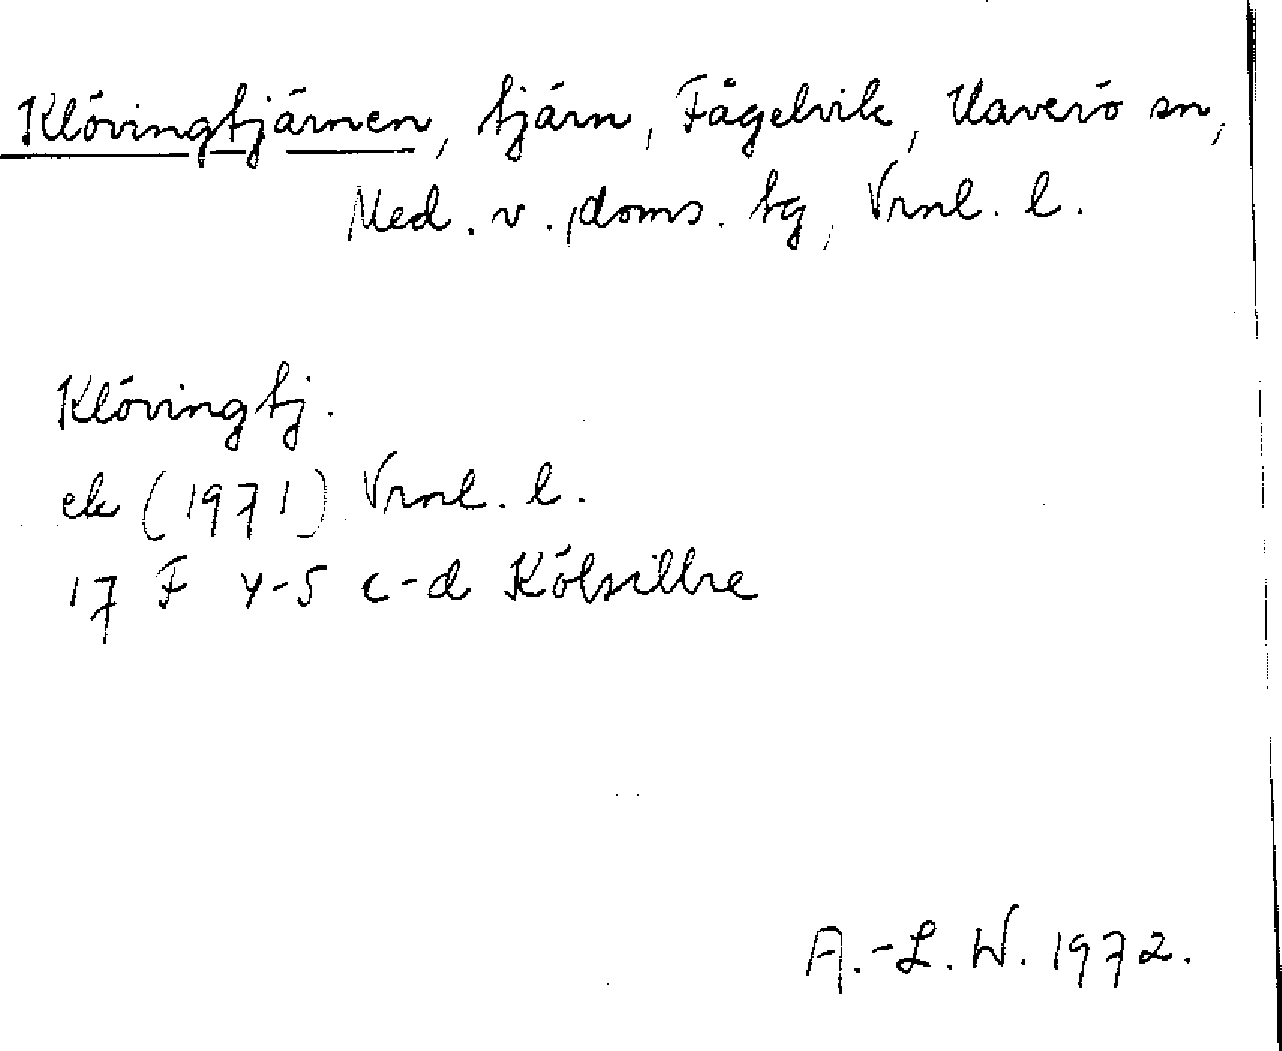 Klövingtjärnen, tjärn, Fågelvik, Haverö sn,
Med. v. doms. tg, Vrnl. l.
Klövingtj.
ek (1971) Vrnl. l.
17 F 4-5 c-d Kölsillre
A.-L. W. 1972.